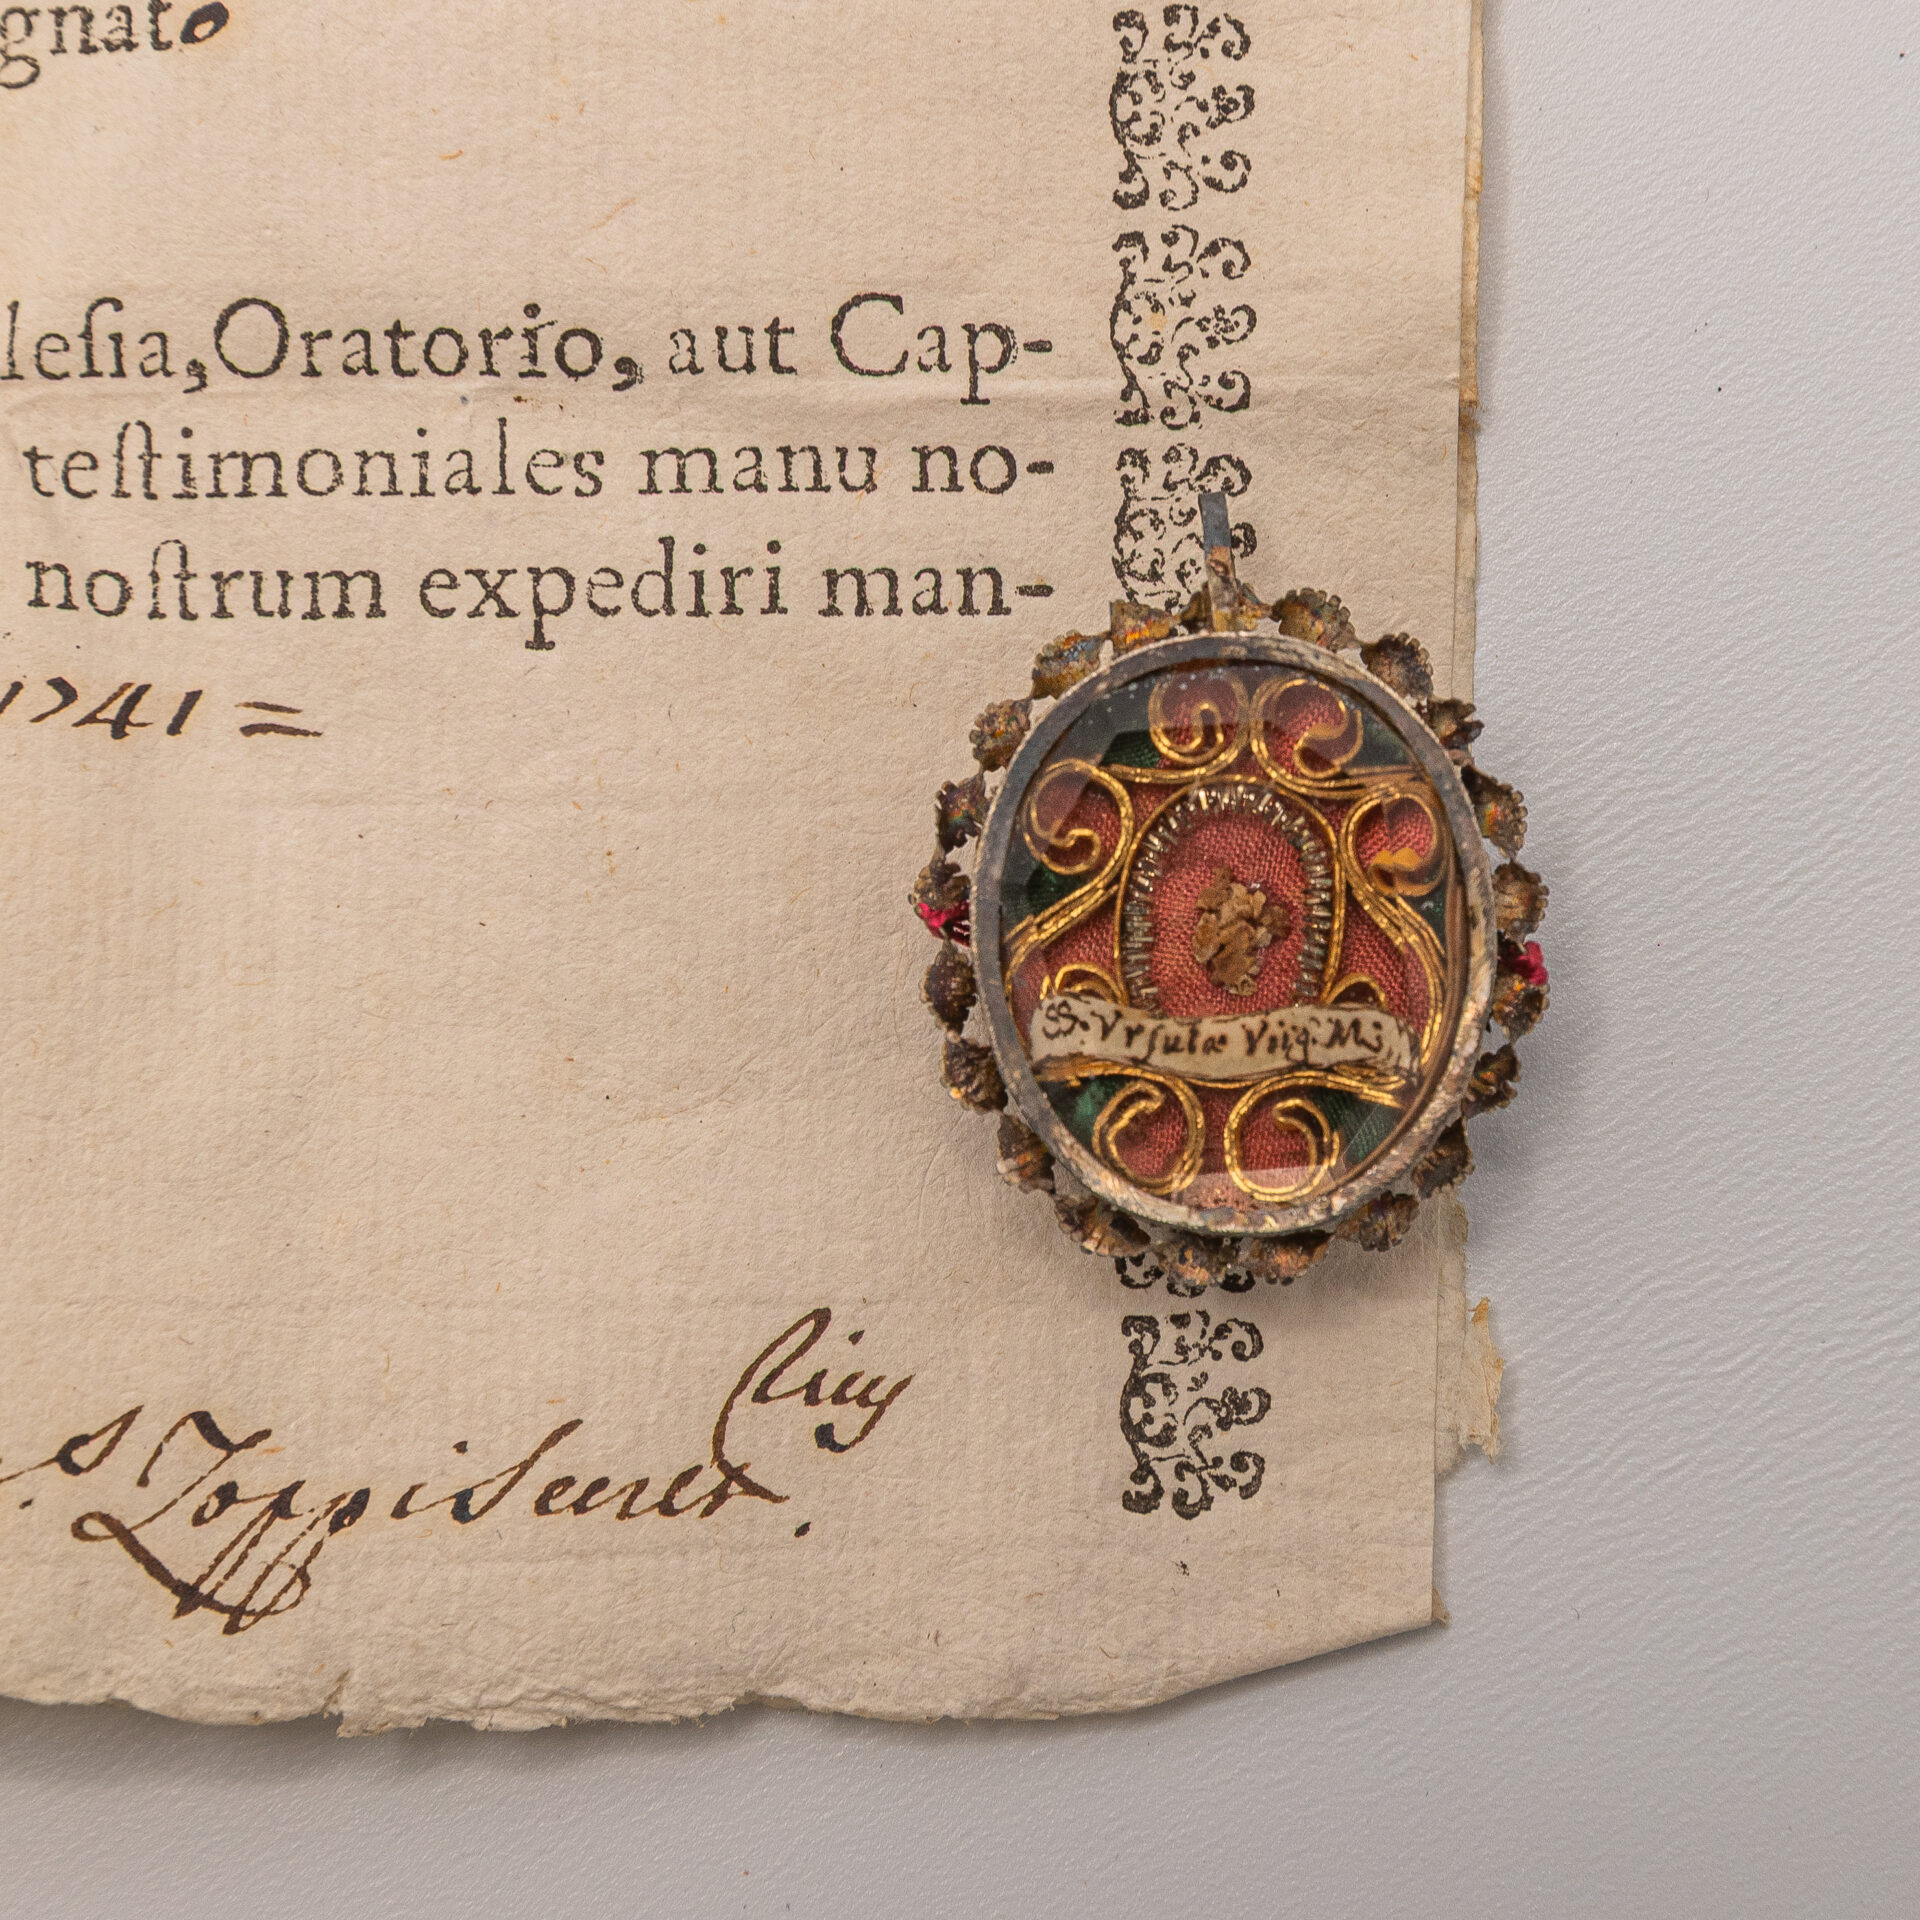 gnato
lesia, Oratorio, aut Cap-
testimoniales manu no-
nostrum expediri man-
1741 =
SS. Ursulæ Virg. M